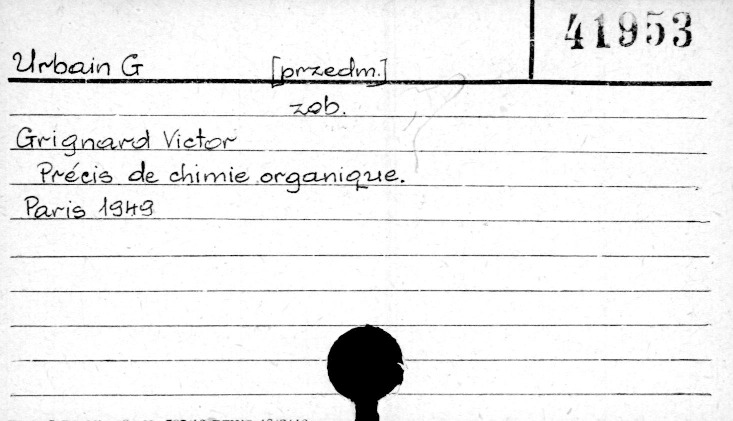 41953
Urbain G [przedm.]
zob.
Grignard Victor
Précis de chimie organique.
Paris 1949